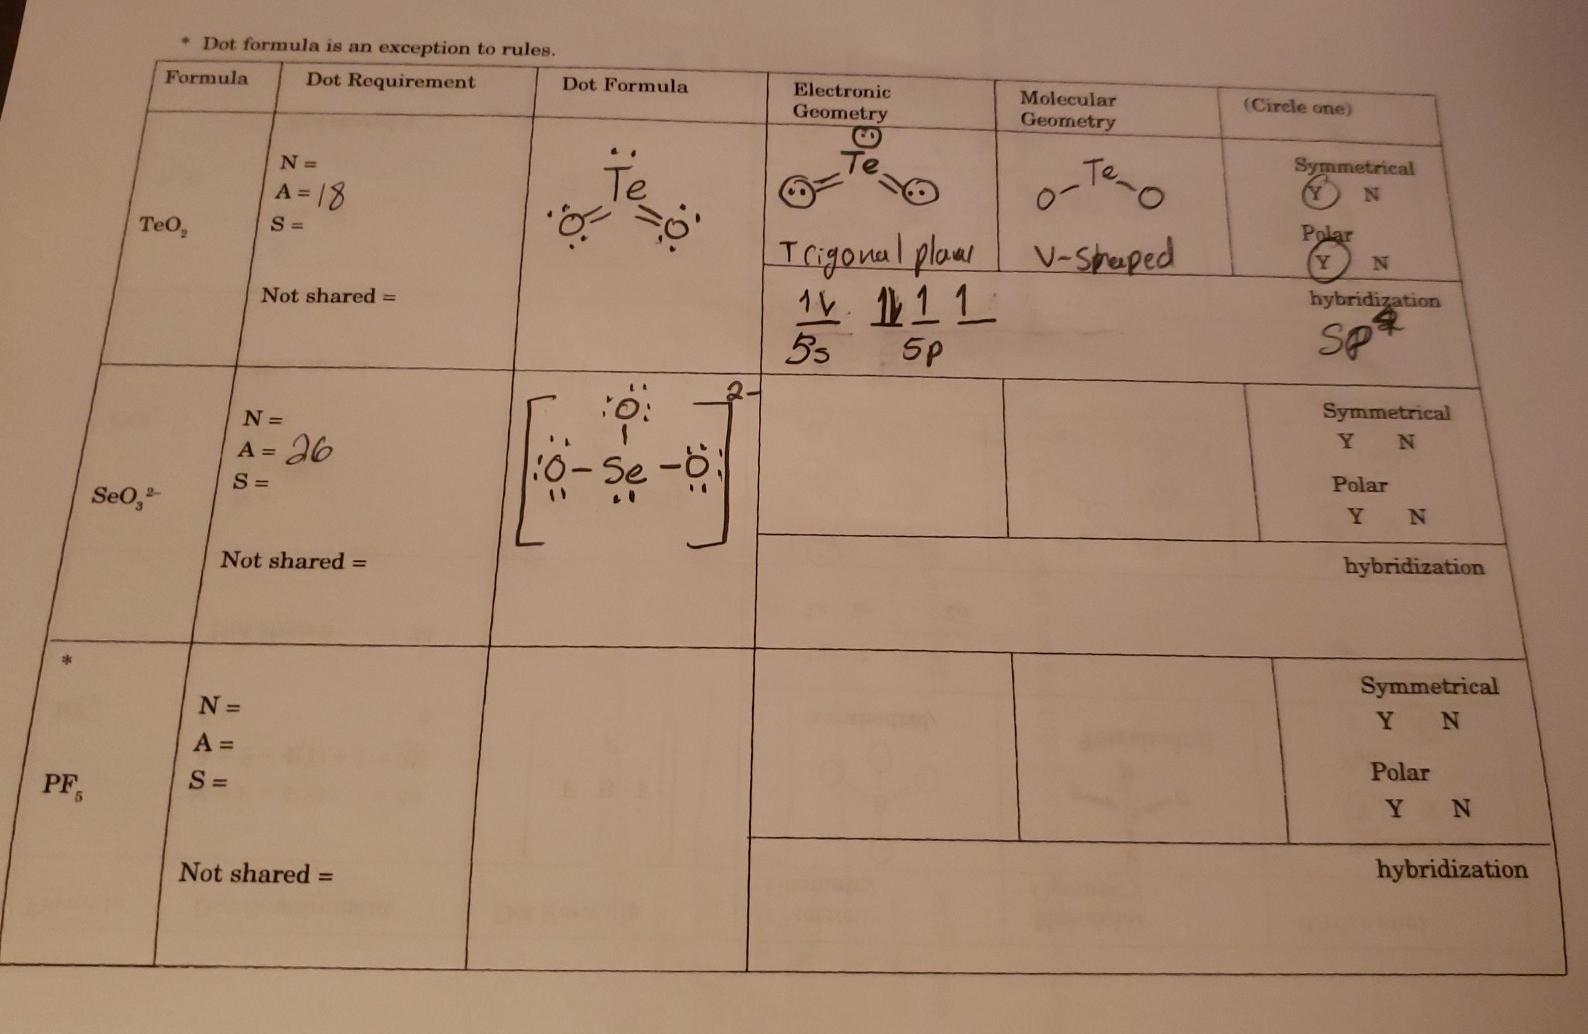 * Dot formula is an exception to rules.
Formula
Dot Requirement
Dot Formula
Electronic
Geometry
Molecular
Geometry
(Circle one)
TeO₂
N =
A = 18
S =
Not shared =
Te
O O
Te
Trigonal planar
Te
O O
V-shaped
Symmetrical
Y N
Polar
Y N
5s 5p
hybridization
SeO₃²⁻
N =
A = 26
S =
Not shared =
2-
O
O - Se - O
Symmetrical
Y N
Polar
Y N
hybridization
*
PF₅
N =
A =
S =
Not shared =
Symmetrical
Y N
Polar
Y N
hybridization